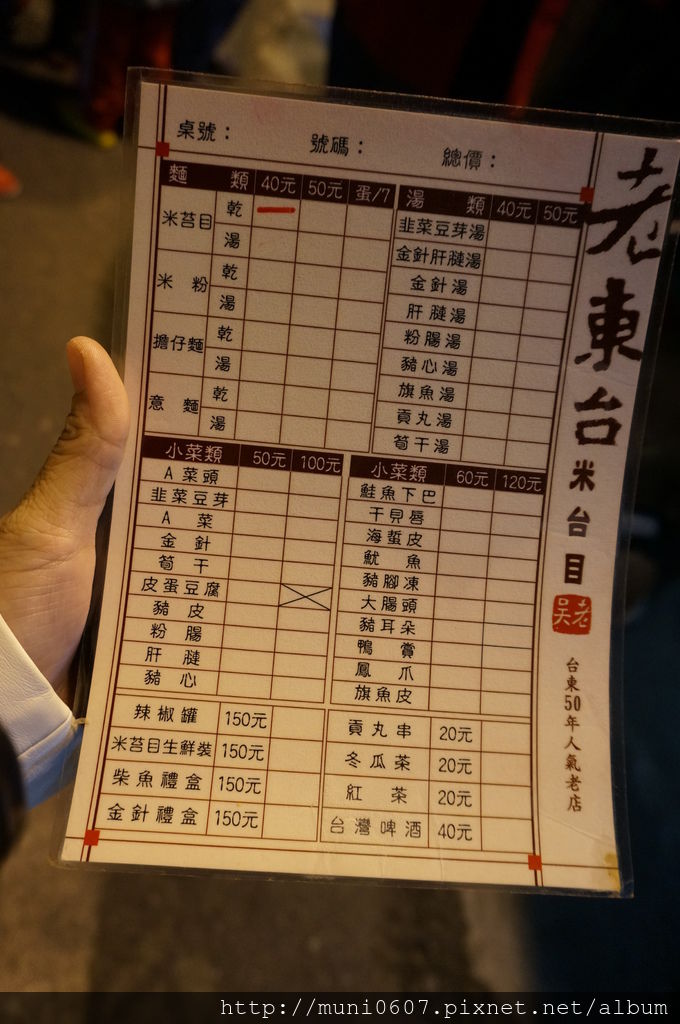 桌號： 號碼： 總價：
麵 類 40元 50元 蛋/7
米苔目 乾
湯
米 粉 乾
湯
擔仔麵 乾
湯
意 麵 乾
湯
湯 類 40元 50元
韭菜豆芽湯
金針肝膜湯
金針湯
肝膜湯
粉腸湯
豬心湯
旗魚湯
貢丸湯
筍干湯
小菜類 50元 100元
A菜頭
韭菜豆芽
A 菜
金 針
筍 干
皮蛋豆腐
豬 皮
粉 腸
肝 膜
豬 心
小菜類 60元 120元
鮭魚下巴
干貝唇
海蜇皮
魷 魚
豬腳凍
大腸頭
豬耳朵
鴨 賞
鳳 爪
旗魚皮
辣椒罐 150元
米苔目生鮮裝 150元
柴魚禮盒 150元
金針禮盒 150元
貢丸串 20元
冬瓜茶 20元
紅 茶 20元
台灣啤酒 40元
老東台
米台目
老吳
台東50年人氣老店
http://muni0607.pixnet.net/album